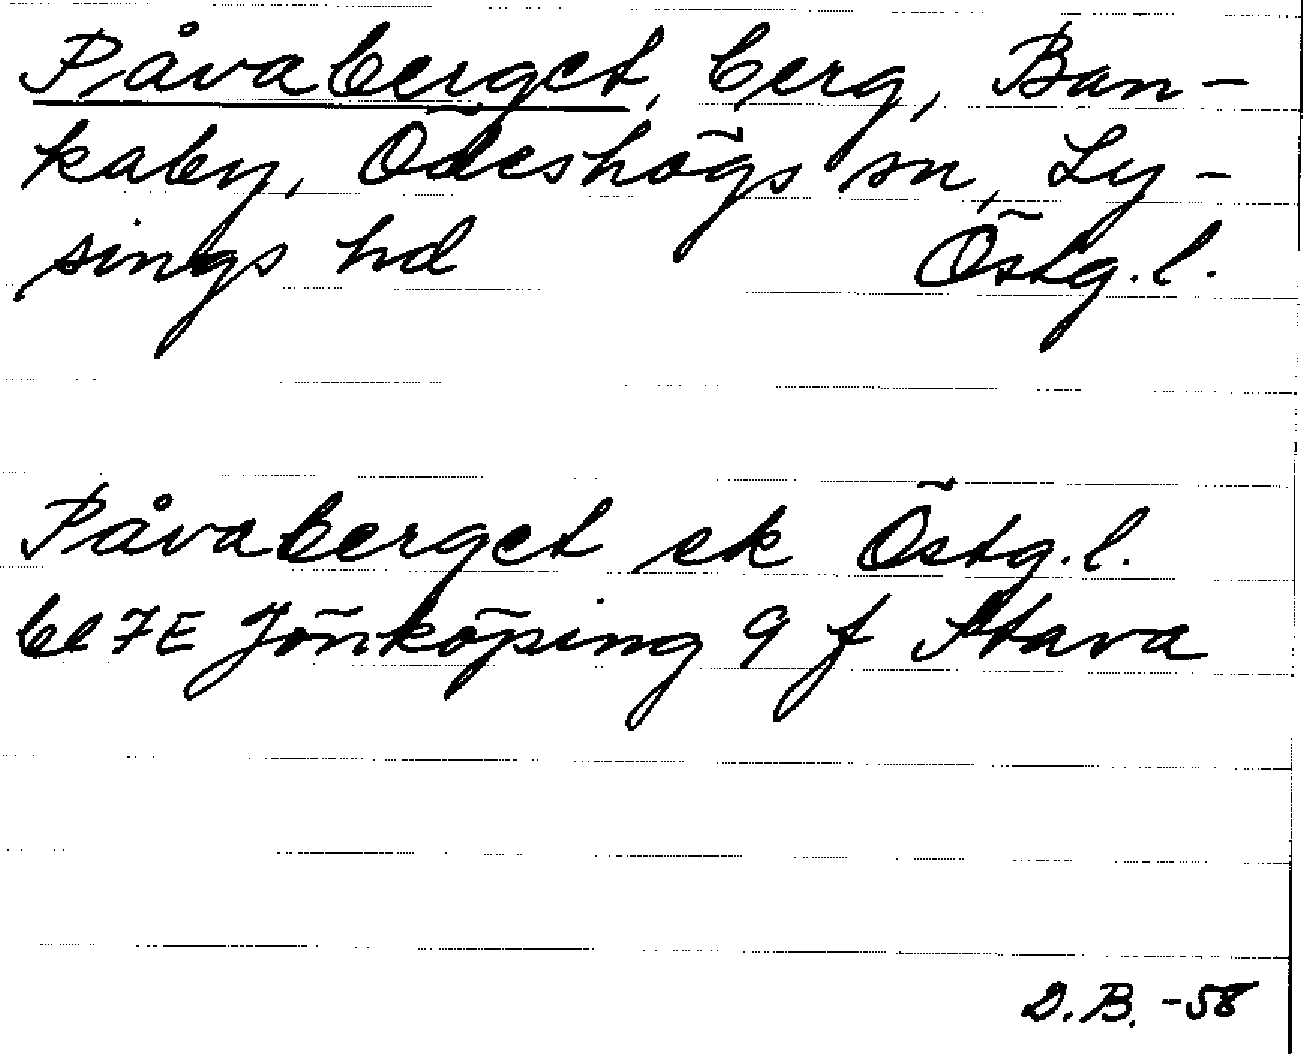 Påvaberget, berg, Ban-
kaby, Ödeshögs sn, Ly-
sings hd Östg.l.
Påvaberget ek Östg.l.
bl 7E Jönköping 9 f Stava
D.B. -58